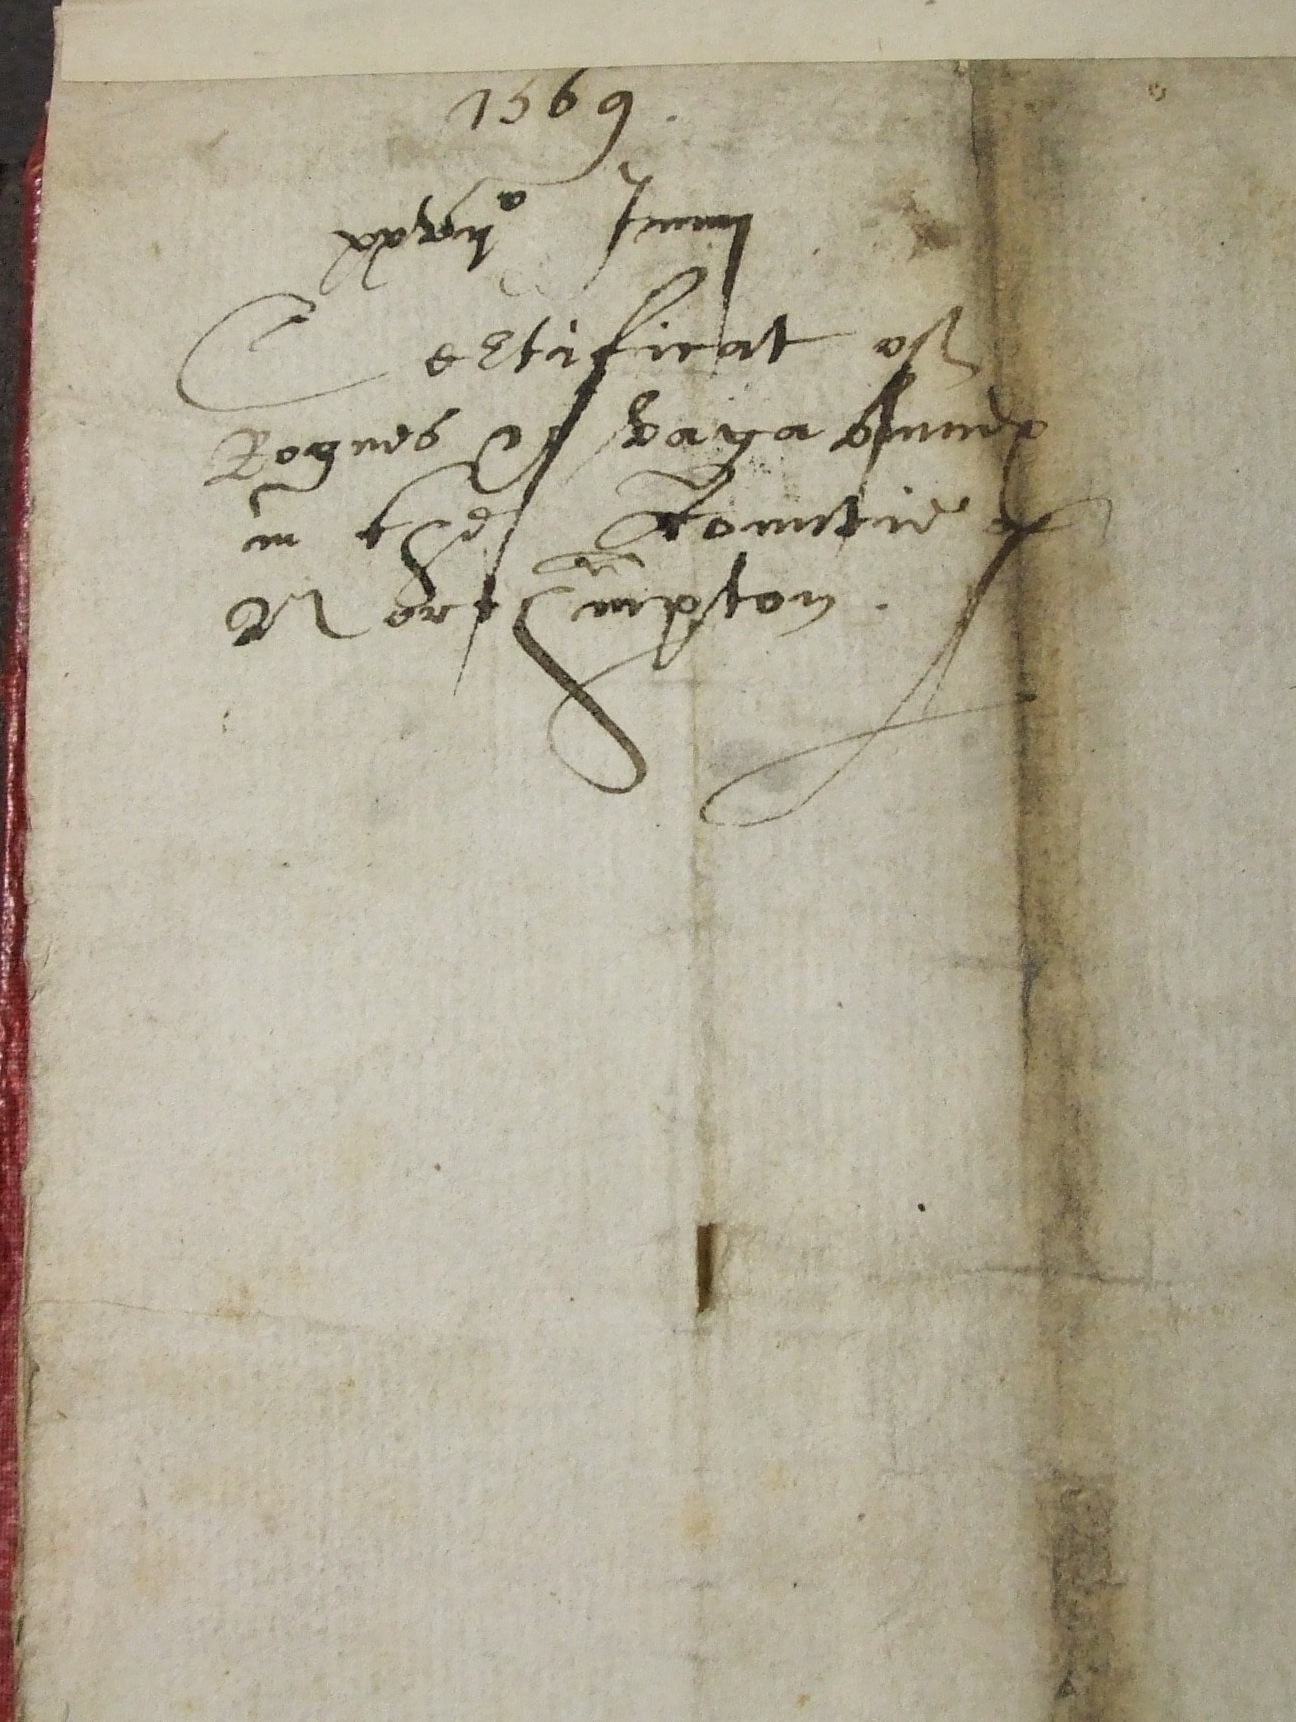 1569.
xxvijo Junij
Certificat of
Rogues & vagabundes
in the Countie of
Northampton.